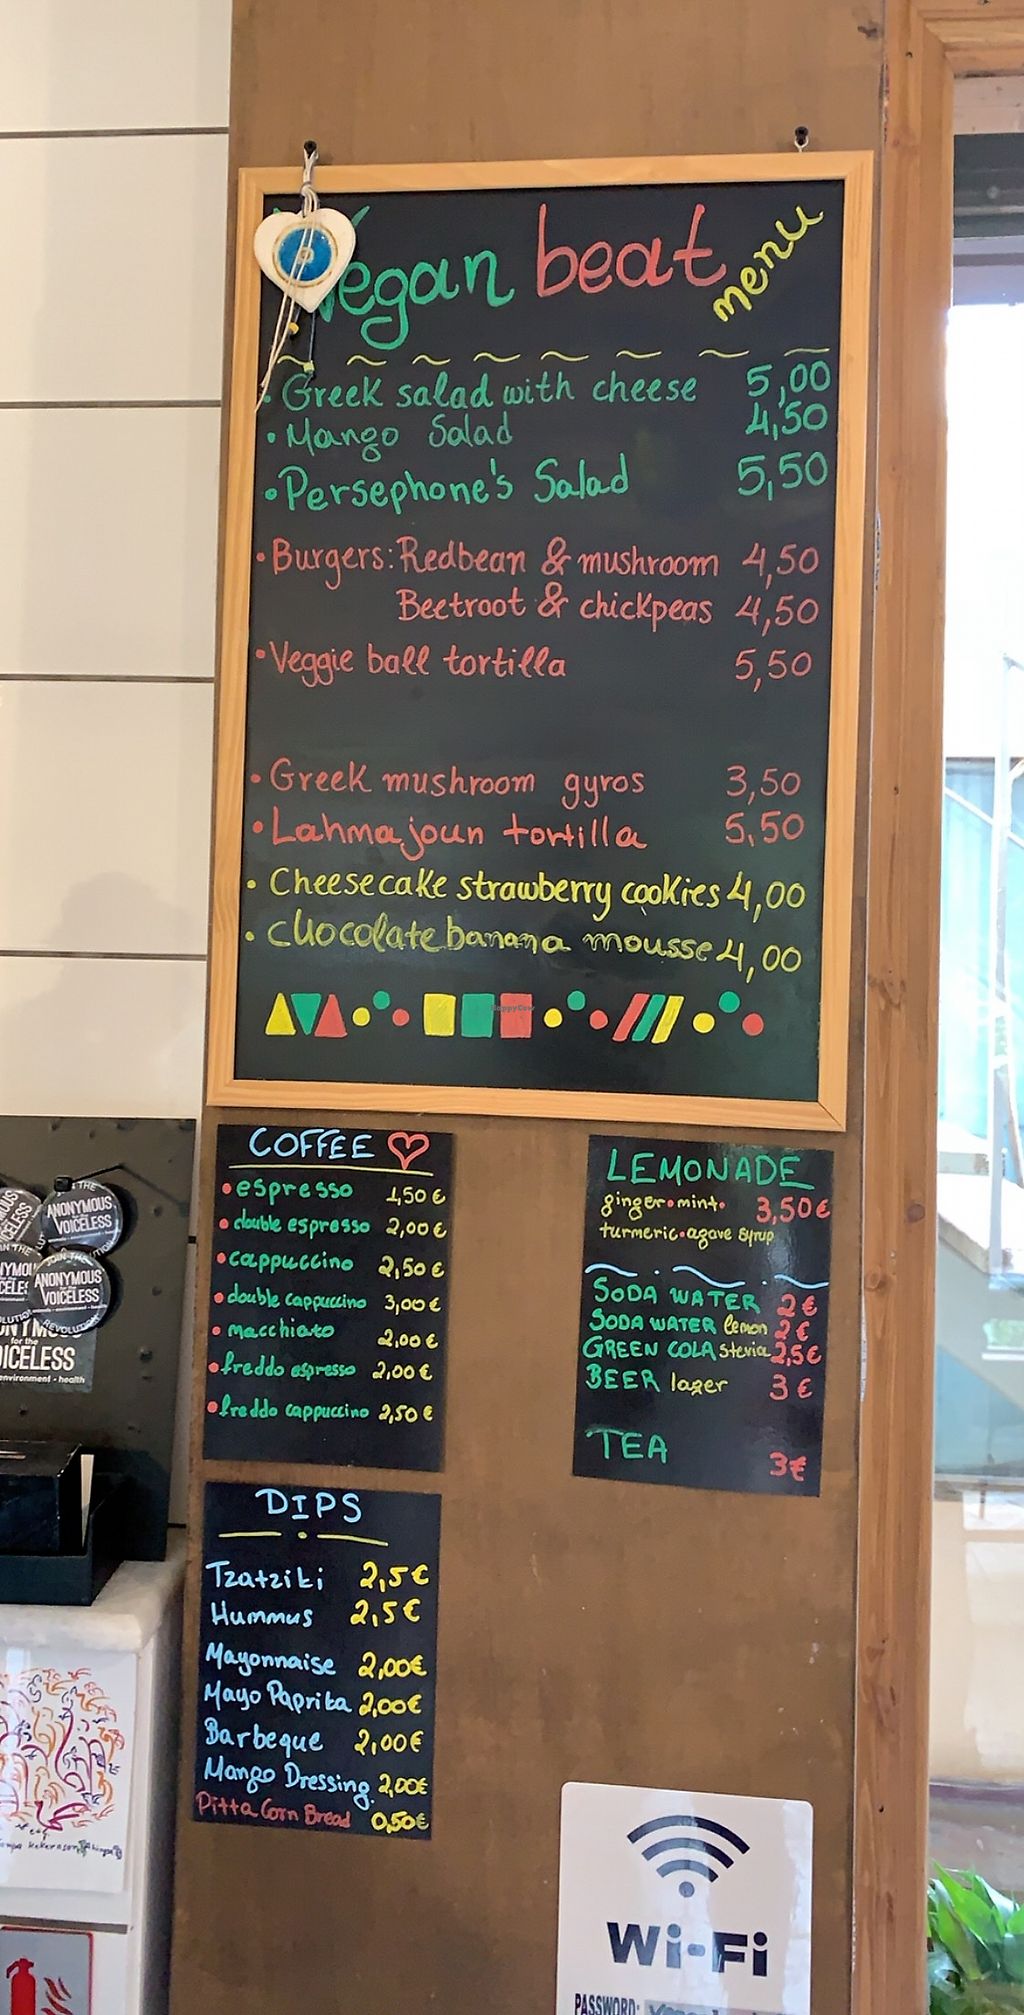 Vegan beat menu
• Greek salad with cheese 5,00
• Mango Salad 4,50
• Persephone's Salad 5,50
• Burgers: Redbean & mushroom 4,50
Beetroot & chickpeas 4,50
• Veggie ball tortilla 5,50
• Greek mushroom gyros 3,50
• Lahmajoun tortilla 5,50
• Cheesecake strawberry cookies 4,00
• chocolate banana mousse 4,00
HappyCow
COFFEE
• espresso 1,50 €
• double espresso 2,00 €
• cappuccino 2,50 €
• double cappuccino 3,00 €
• macchiato 2,00 €
• freddo espresso 2,00 €
• freddo cappuccino 2,50 €
LEMONADE
ginger • mint • 3,50 €
turmeric • agave syrup
SODA WATER 2 €
SODA WATER lemon 2 €
GREEN COLA stevia 2,5 €
BEER lager 3 €
TEA
3 €
DIPS
Tzatziki 2,5 €
Hummus 2,5 €
Mayonnaise 2,00 €
Mayo Paprika 2,00 €
Barbeque 2,00 €
Mango Dressing 2,00 €
Pitta Corn Bread 0,50 €
ANONYMOUS
for the
VOICELESS
JOIN THE
ANONYMOUS
for the
VOICELESS
REVOLUTION
for the
environment • health
Wi-Fi
PASSWORD: